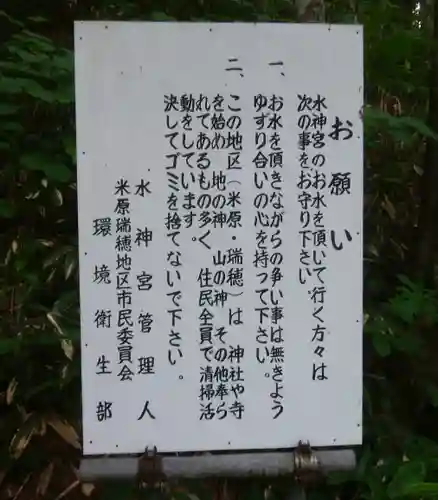 お願い
水神宮のお水を頂いて行く方々は
次の事をお守り下さい。
一、お水を頂きながらの争い事は無きよう
ゆずり合いの心を持って下さい。
二、この地区（米原・瑞穂）は 神社や寺
を始め 地の神 山の神 その他奉ら
れてあるもの多く 住民全員で清掃活
動をしています。
決してゴミを捨てないで下さい。
水神宮管理人
米原瑞穂地区市民委員会
環境衛生部